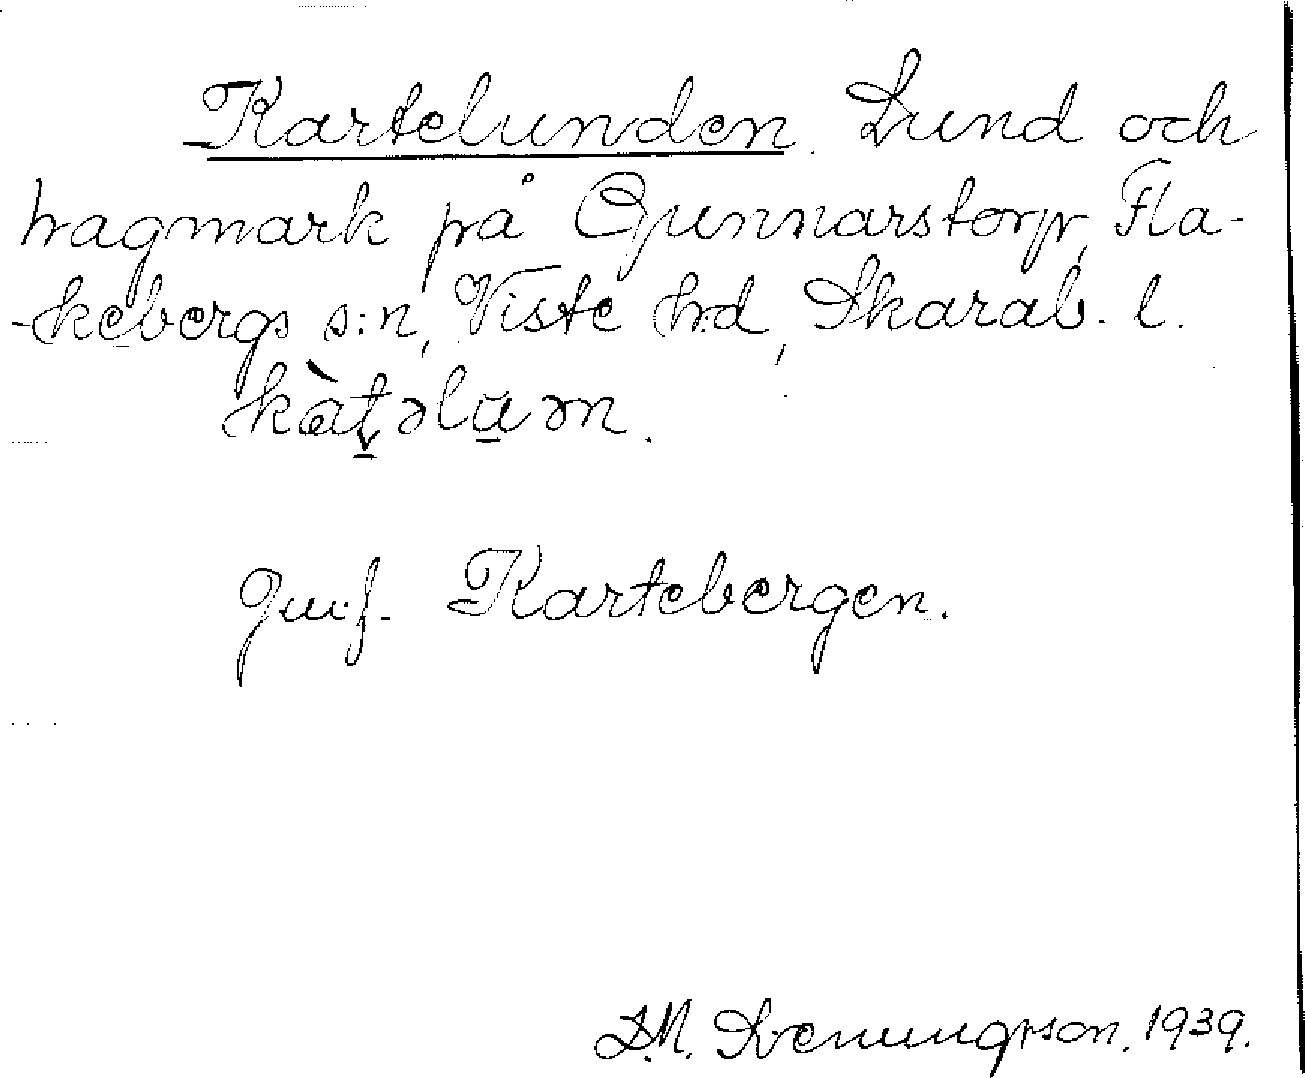 Kartelunden. Lund och
hagmark på Gunnarstorp, Fla-
-kebergs s:n, Viste h:d, Skarab. l.
kàt̯əlu̠əm.
Jmf. Kartebergen.
S.M. Svenungsson. 1939.